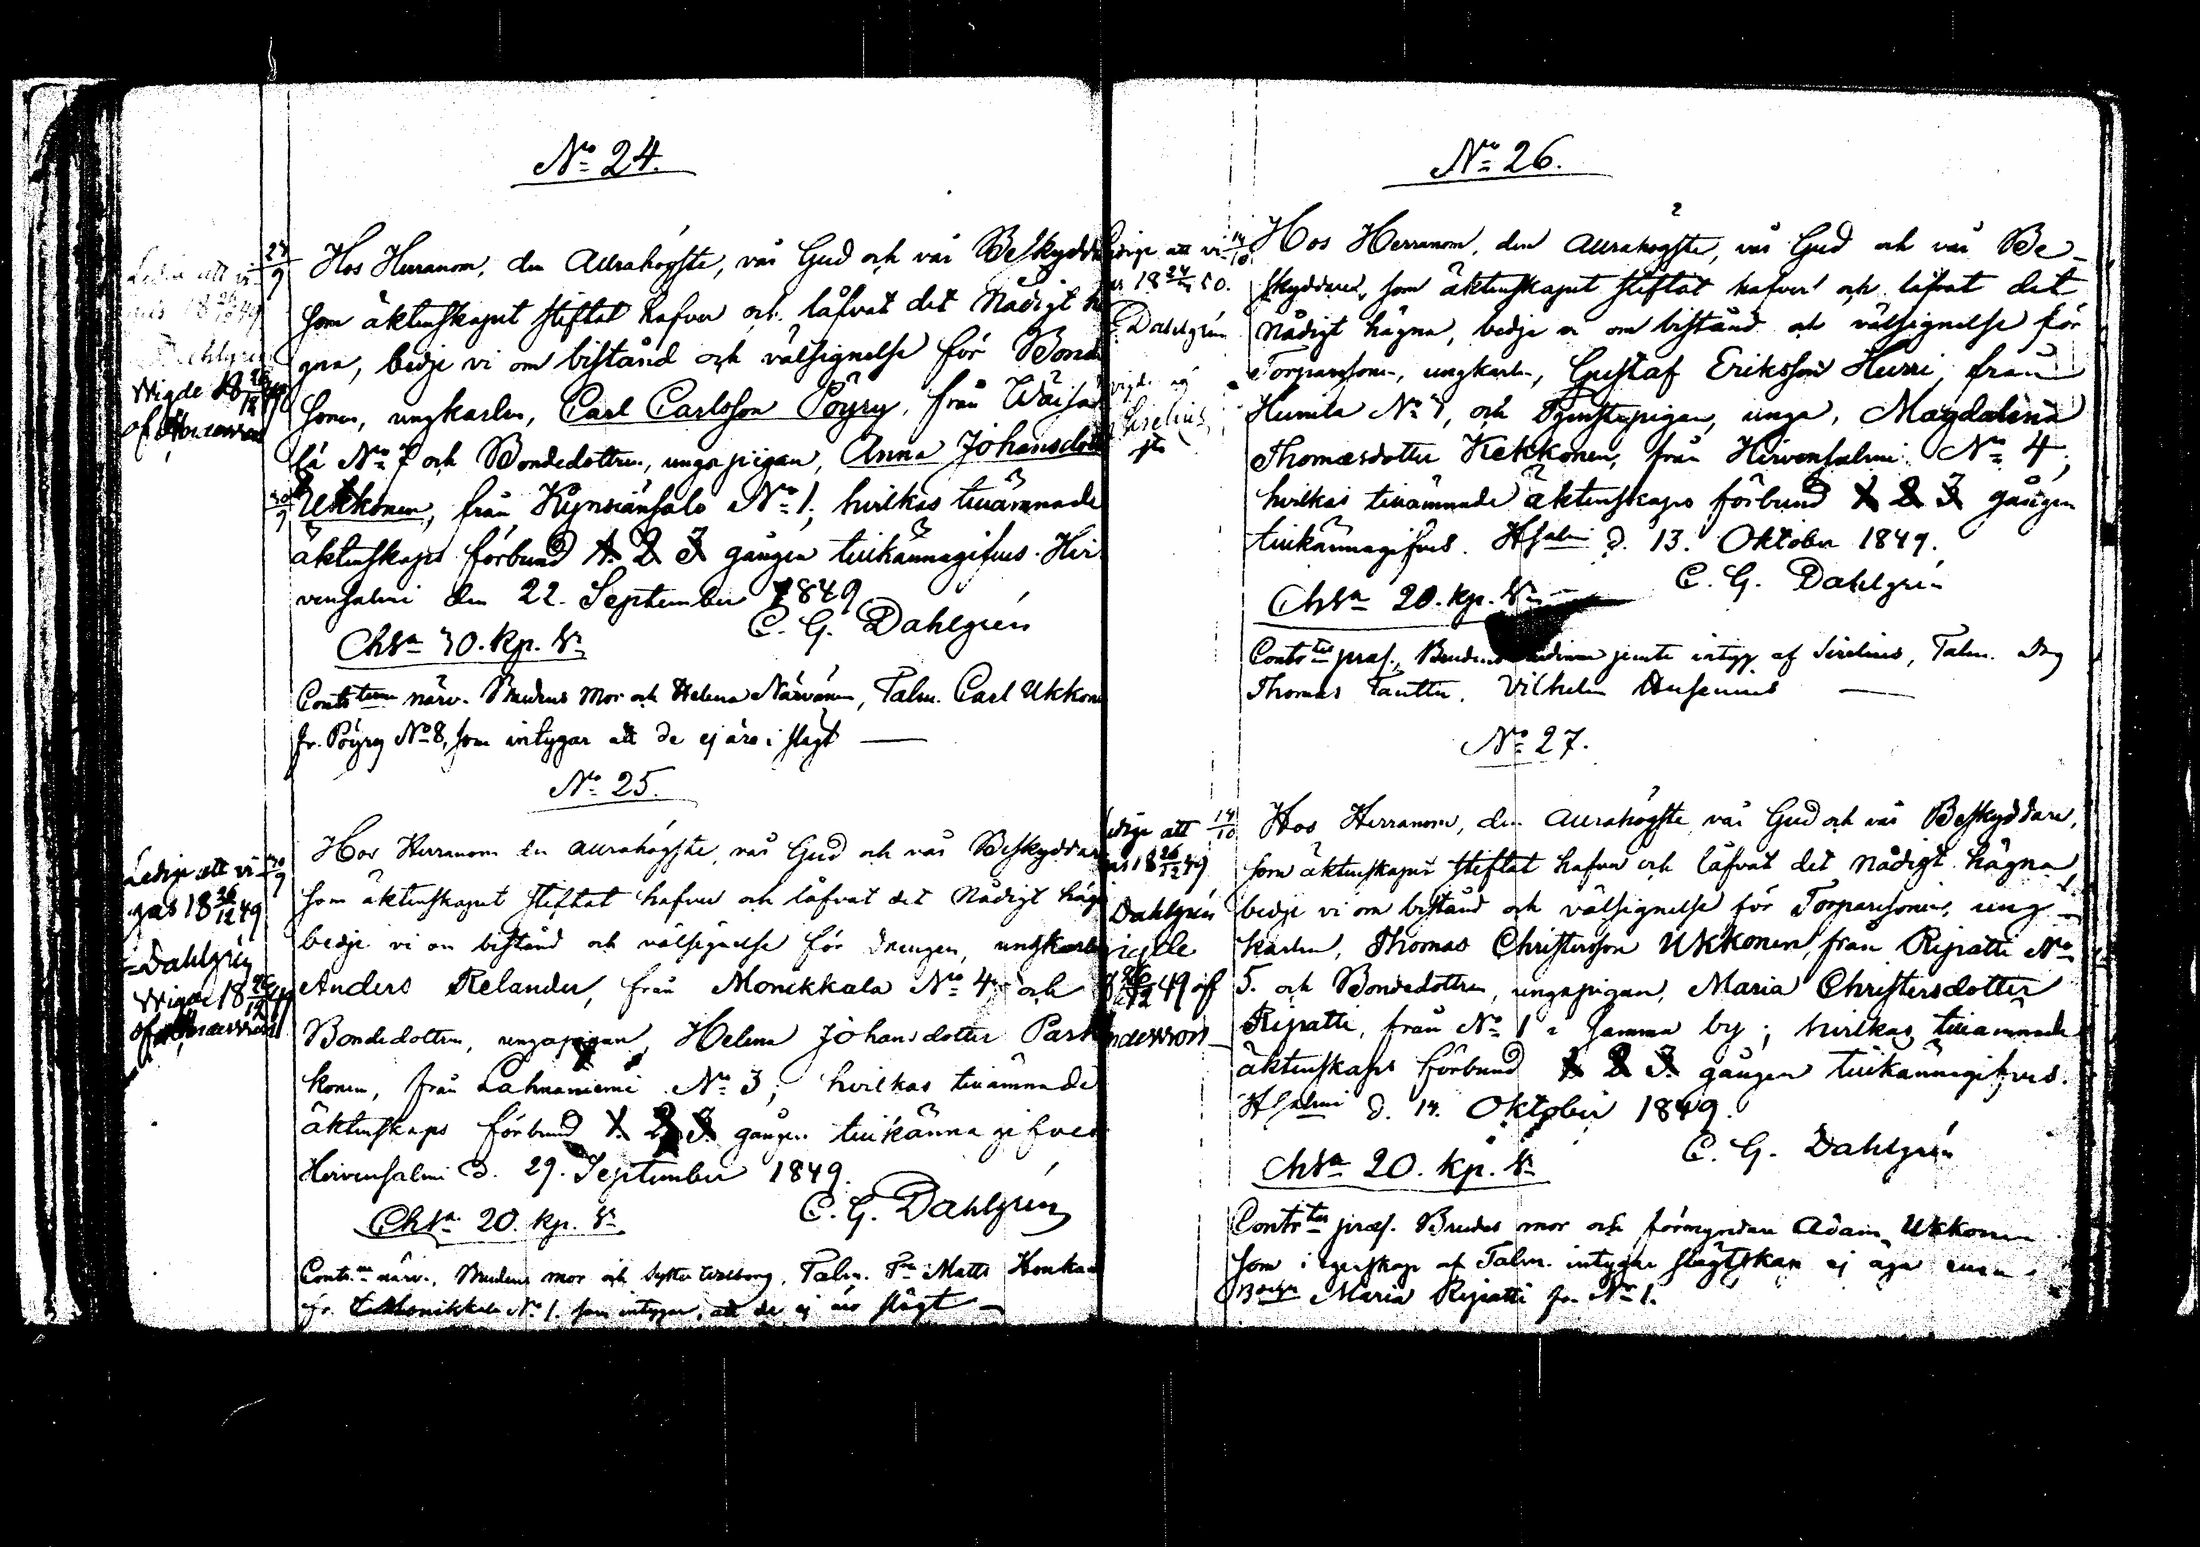 No 24.
Ledige att vi- 23/9
gas 18 26/12 49
Dahlgrén
Wigde 18 26/12 49
af Andersson
Hos Herranom, den Allrahögste, vår Gud och vår Beskydda
som äktenskapet stiftat hafver och låfvat det Nådigt hä
gna, bedje vi om bistånd och välsignelse för Bonde
sonen, ungkarlen, Carl Carlsson Pöyry, från Wäisä
lä No 7 och Bondedottren, unga pigan, Anna Johansdott
30/9 Ukkonen, från Kynsiänsalo No 1; hvilkas tillämnade
äktenskaps förbund 1. 2 3 gången tillkännagifves. Hir-
vensalmi den 22. September 1849
C. G. Dahlgrén
Chta 30. kp. Sr
Contrterne närv. Brudens Mor och Helena Närvänen, Talm. Carl Ukkone
fr. Pöyry No 8, som intygar att de ej äro i slägt —
No 25.
Ledige att vi- 30/9
gas 18 26/12 49
Dahlgrén
Wigde 18 26/12 49
af Andersson
Hos Herranom den allrahögste, vår Gud och vår Beskyddar
som äktenskapet stiftat hafver och låfvat det Nådigt häg
bedje vi om bistånd och välsignelse för drengen, ungkarlen
Anders Relander, från Monikkala No 4 och
Bondedottren, ungapigan, Helena Johansdotter Park
konen, från Lahnaniemi No 3; hvilkas tillämnade
äktenskaps förbund 1. 2. 3. gången tillkännagifves
Hirvensalmi d. 29. September 1849.
C. G. Dahlgrén
Chta 20. kp. Sr
Contr. närv., Brudens mor och syster Walborg, Talm. Matts Honkan
fr. Monikkala No 1. som intygar, att de ej äro slägt —
No 26.
Ledige att vi- 14/10
gas 18 50.
Dahlgrén
vigde af
Sirelius
Hos Herranom, den allrahögste, vår Gud och vår Be-
skyddare, som äktenskapet stiftat hafver och låfvat det
nådigt hägna, bedje vi om bistånd och välsignelse för
Torparsonen, ungkarlen, Gustaf Eriksson Hurri, från
No 7, och Tjenstepigan, unga, Magdalena
Thomasdotter Kekkonen, från Hirvensalmi No 4;
hvilkas tillämnade äktenskaps förbund 1 2 3 gången
tillkännagifves. Hsalmi d. 13. Oktober 1849.
C. G. Dahlgrén
Chta 20. kp. Sr —
Contrtes præs., Brudens jemte intyg af Sirelius, Talm. Drg
Thomas Tanttu. Vilhelm —
No 27.
Ledige att 14/10
gas 18 26/12 49
Dahlgrén
vigde
18 26/12 49 af
Andersson
Hos Herranom, den Allrahögste vår Gud och vår Beskyddare,
som äktenskapet stiftat hafver och låfvat det nådigt hägna,
bedje vi om bistånd och välsignelse för Torparesonen, ung-
karlen, Thomas Christersson Ukkonen, från Ripatti No
5. och Bondedottren, ungapigan, Maria Christersdotter
Ripatti, från No 1 i samma by; hvilkas tillämnade
äktenskaps förbund 1 2 3. gången tillkännagifves.
Hsalmi d. 14. Oktober 1849.
C. G. Dahlgrén
Chta 20. kp. Sr
Contrtes præs. Brudens mor och förmyndare Adam Ukkonen
som i egenskap af Talm. intygar slägtskap ej äga rum.
Maria Ripatti fr. No 1.